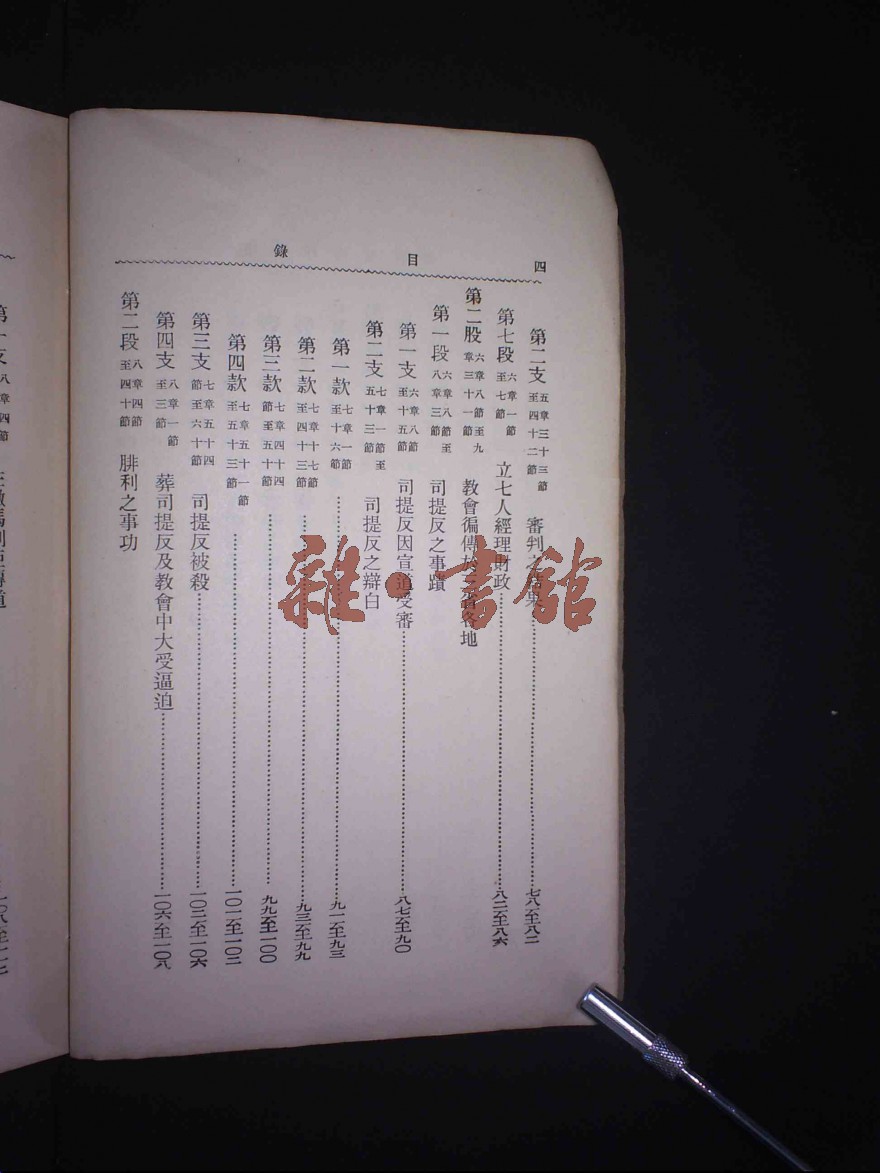 四 目 錄
第二支 五章三十三節至四十二節 審判之結果 七八至八二
第七段 六章一節至七節 立七人經理財政 八二至八六
第二股 六章八節至九章三十一節 教會徧傳於 各地
第一段 六章八節至八章三節 司提反之事蹟
第一支 六章八節至十五節 司提反因宣道受審 八七至九〇
第二支 七章一節至五十三節 司提反之辯白
第一款 七章一節至十六節 九一至九三
第二款 七章十七節至四十三節 九三至九九
第三款 七章四十四節至五十節 九九至一〇〇
第四款 七章五十一節至五十三節 一〇一至一〇二
第三支 七章五十四節至六十節 司提反被殺 一〇二至一〇六
第四支 八章一節至三節 葬司提反及教會中大受逼迫 一〇六至一〇八
第二段 八章四節至四十節 腓利之事功
八章四節
雜·書館